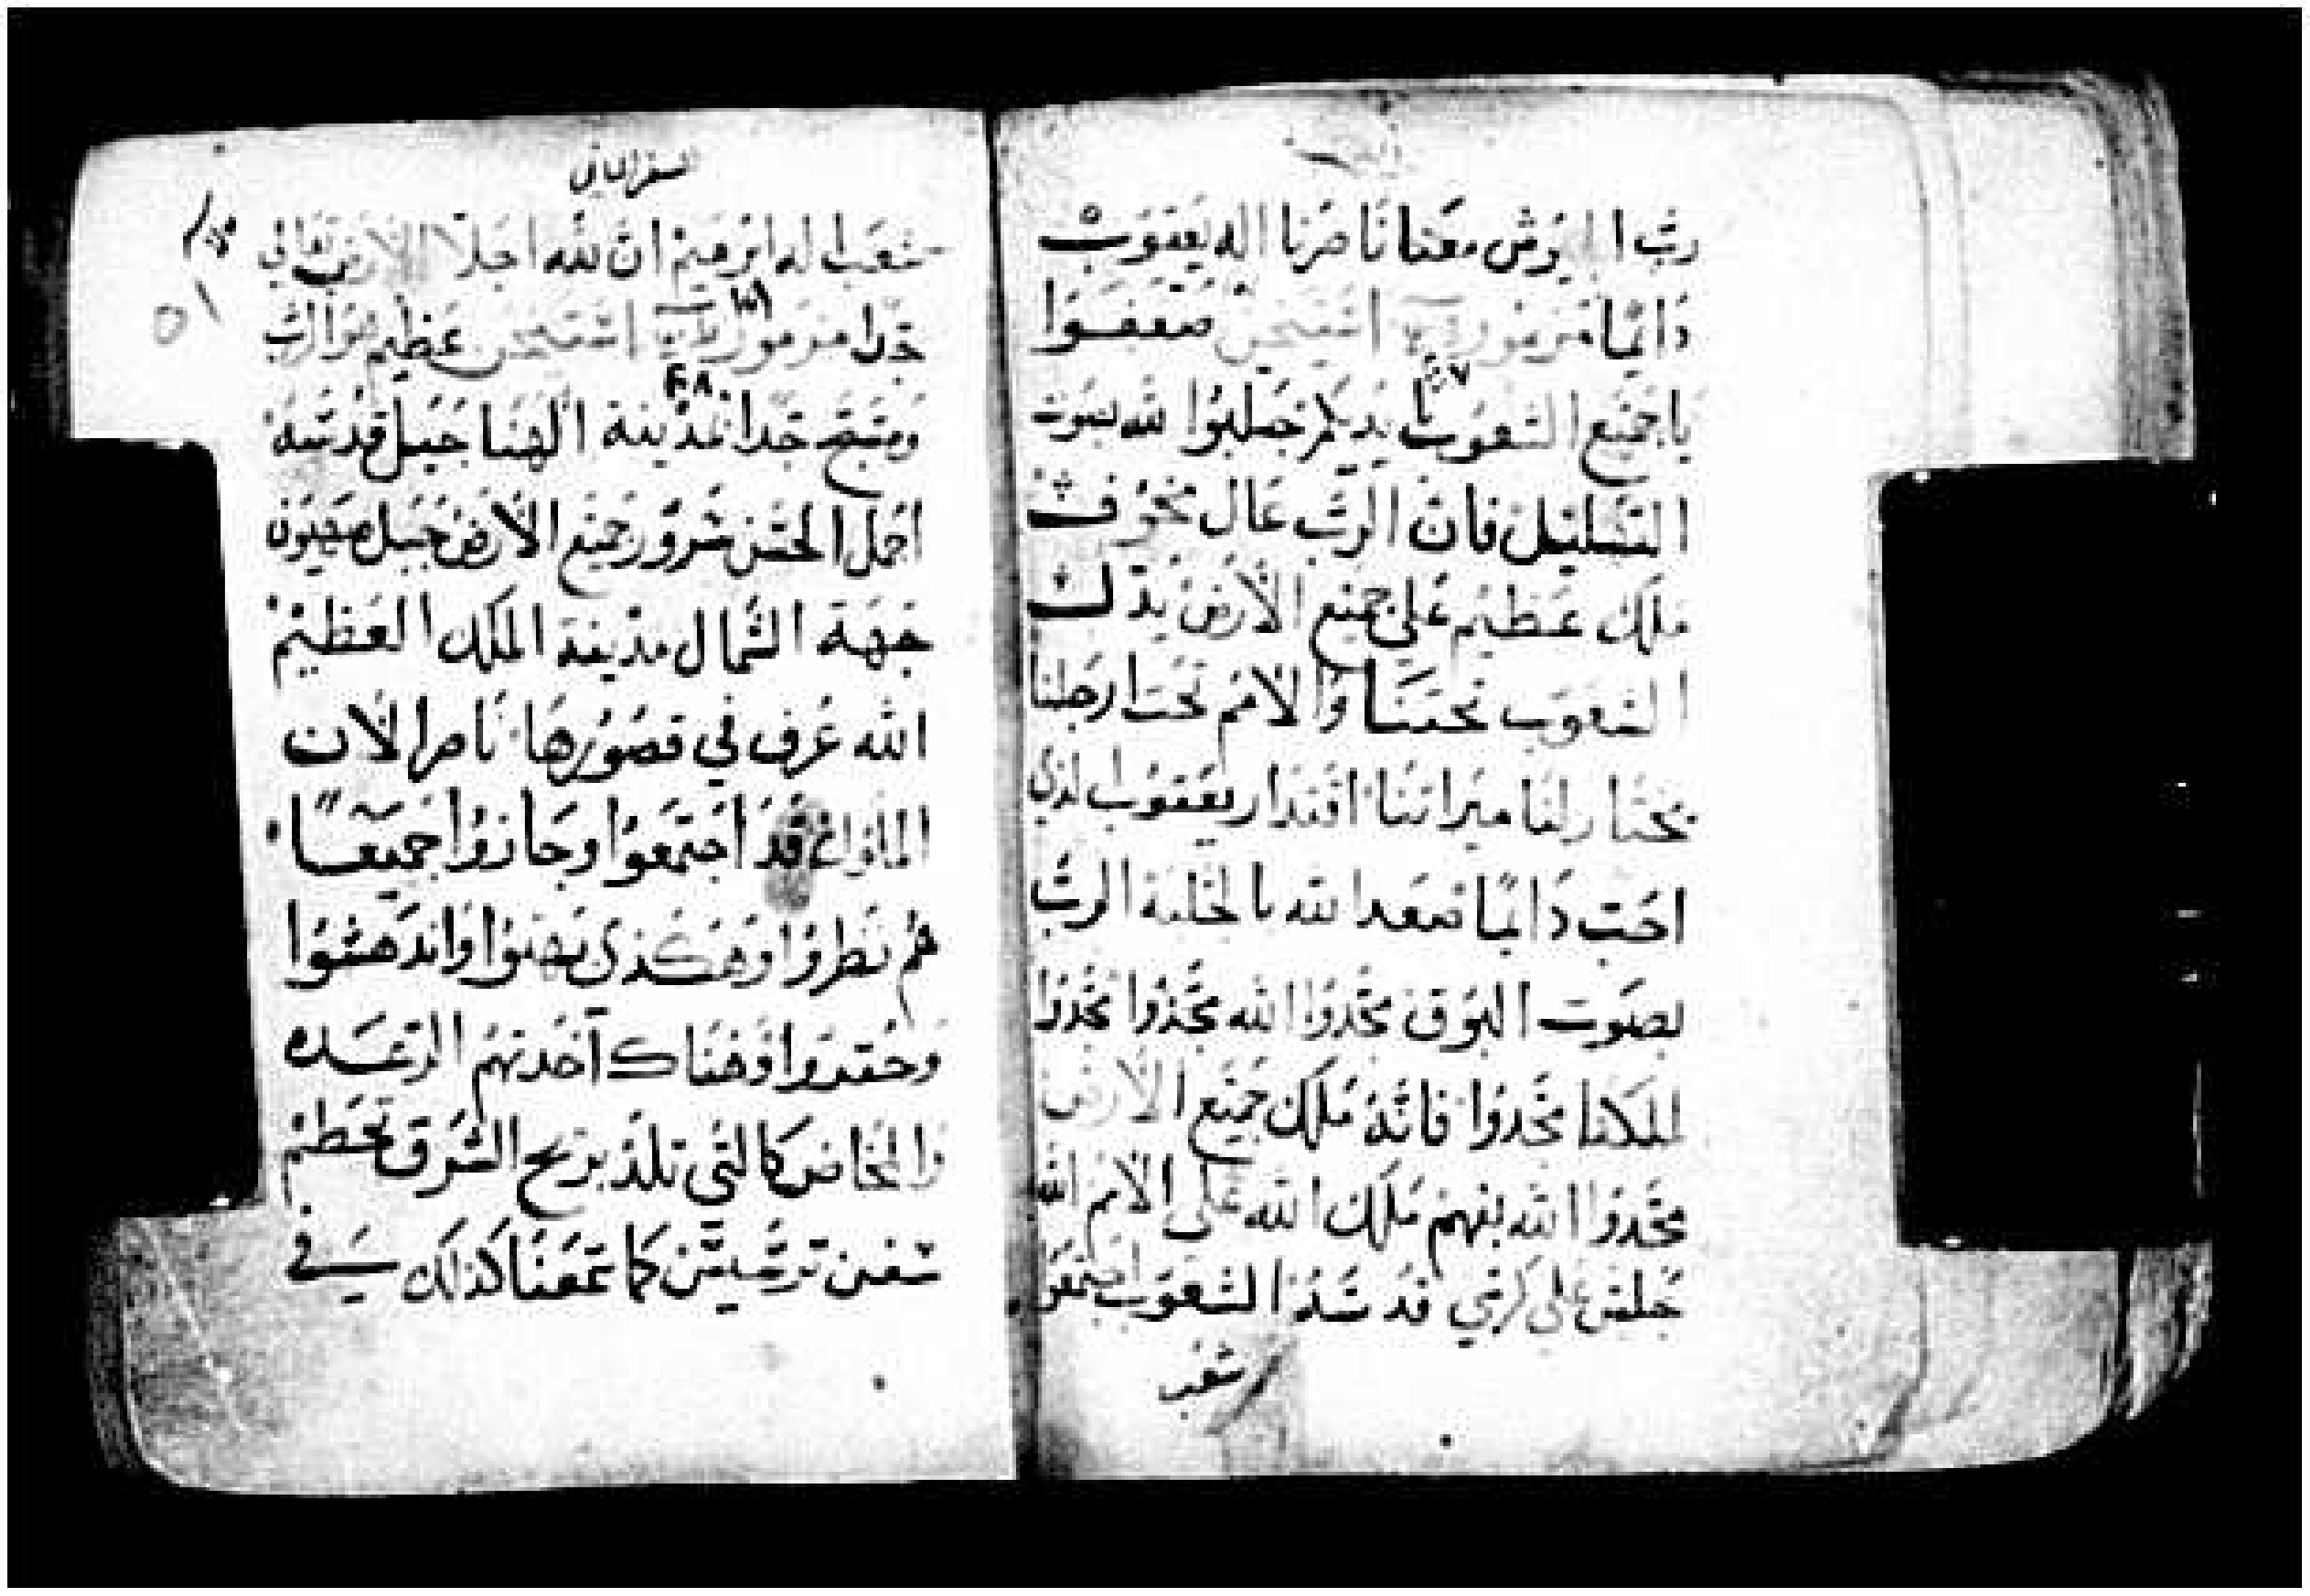 رب الجيوش معنا ناصرنا اله يعقوب
دائمًا مزمور اشتيخن صفقوا
٧
يا جميع الشعوب بايديكم جلبوا لله بصوت
التهليل فان الرب عال مخوف
ملك عظيم على جميع الارض يذلل
الشعوب تحتنا والامم تحت ارجلنا
يختار لنا ميراثنا افتخار يعقوب الذي
احب دائمًا صعد الله بالجلبة الرب
بصوت البوق مجّدوا الله مجّدوا مجّدوا
لملكنا مجّدوا فانّه ملك جميع الارض
مجّدوا الله بفهم ملك الله على الامم الله
جلس على كرسي قدسه الشعوب اجتمعوا
شعب
السفر الثاني
شعب اله ابرهيم ان لله اجلا الارض تعالى
٥١
جدا مزمور اشتيخن عظيم هو الرب
٤٨
ومسبح جدا بمدينة الهنا جبل قدسه
اجمل الحسن سرور جميع الارض جبل صهيون
جهة الشمال مدينة الملك العظيم
الله عرف في قصورها ناصرا لان
الملوك قد اجتمعوا وجازوا جميعًا
هم نظروا وهكذى بهتوا واندهشوا
وهناك آخذتهم الرعده
والمخاض كالتي تلد بريح الشرق تحطم
سفن ترسيس كما سمعنا كذلك